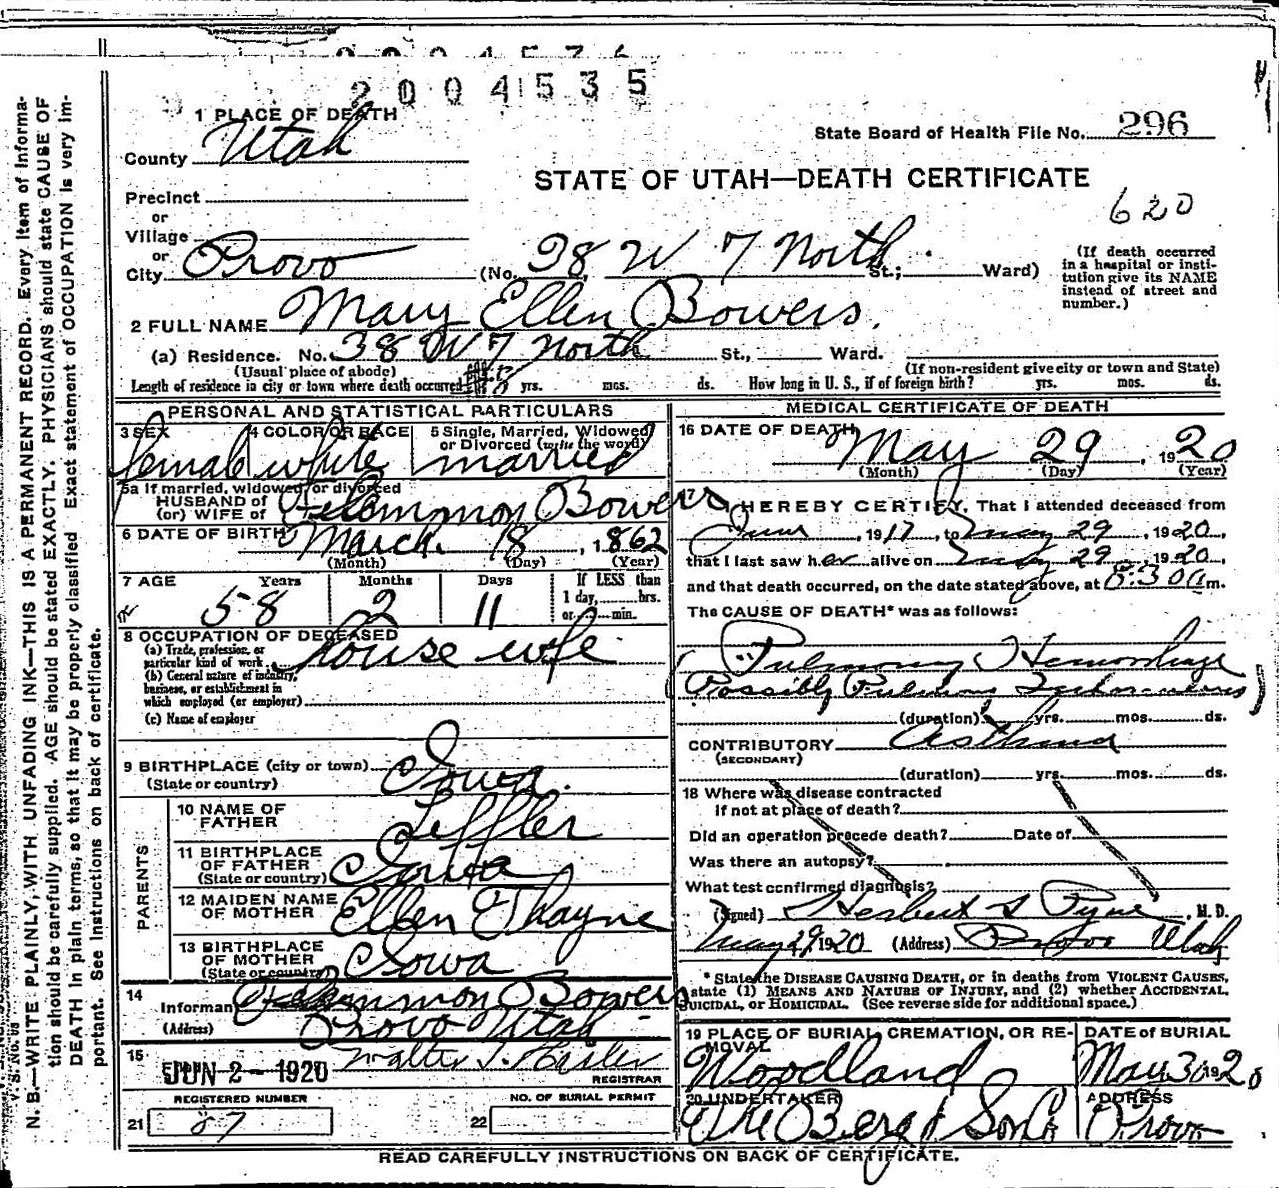 2004535
1 PLACE OF DEATH
County Utah
State Board of Health File No. 296
STATE OF UTAH—DEATH CERTIFICATE
620
Precinct
or
Village
or
City Provo (No. 38 W 7 North St.; Ward)
(If death occurred in a hospital or institution give its NAME instead of street and number.)
2 FULL NAME Mary Ellen Bowers.
(a) Residence. No. 38 W 7 North St., Ward.
(Usual place of abode) (If non-resident give city or town and State)
Length of residence in city or town where death occurred yrs. mos. ds. How long in U. S., if of foreign birth? yrs. mos. ds.
PERSONAL AND STATISTICAL PARTICULARS
3 SEX female
4 COLOR OR RACE white
5 Single, Married, Widowed or Divorced (write the word) married
5a If married, widowed, or divorced
HUSBAND of
(or) WIFE of Bowers
6 DATE OF BIRTH March 18, 1862
(Month) (Day) (Year)
7 AGE Years Months Days If LESS than
58 2 11 1 day, hrs.
or min.
8 OCCUPATION OF DECEASED
(a) Trade, profession, or
particular kind of work house wife
(b) General nature of industry,
business, or establishment in
which employed (or employer)
(c) Name of employer
9 BIRTHPLACE (city or town) Iowa.
(State or country)
PARENTS
10 NAME OF
FATHER Leffler
11 BIRTHPLACE
OF FATHER
(State or country) Iowa
12 MAIDEN NAME
OF MOTHER Ellen Thayne
13 BIRTHPLACE
OF MOTHER
(State or country) Iowa
14
Informant Bowers
(Address) Provo Utah
15 JUN 2 - 1920 Walter
REGISTRAR
REGISTERED NUMBER NO. OF BURIAL PERMIT
21 87 22
MEDICAL CERTIFICATE OF DEATH
16 DATE OF DEATH May 29, 1920
(Month) (Day) (Year)
17 I HEREBY CERTIFY, That I attended deceased from
June, 1917, to May 29, 1920,
that I last saw her alive on May 29, 1920,
and that death occurred, on the date stated above, at 8:30 a m.
The CAUSE OF DEATH* was as follows:
Pulmonary Hemorrhage
(Possibly Pulmonary Tuberculosis)
(duration) yrs. mos. ds.
CONTRIBUTORY Asthma
(SECONDARY)
(duration) yrs. mos. ds.
18 Where was disease contracted
if not at place of death?
Did an operation precede death? Date of
Was there an autopsy?
What test confirmed diagnosis?
(Signed) Herbert S Pyne, M. D.
May 29 1920 (Address) Provo Utah
* State the DISEASE CAUSING DEATH, or in deaths from VIOLENT CAUSES,
state (1) MEANS AND NATURE OF INJURY, and (2) whether ACCIDENTAL,
SUICIDAL, OR HOMICIDAL. (See reverse side for additional space.)
19 PLACE OF BURIAL, CREMATION, OR REMOVAL
Woodland
DATE of BURIAL
May 30 1920
20 UNDERTAKER
The Berg & Son Co
ADDRESS
Provo
READ CAREFULLY INSTRUCTIONS ON BACK OF CERTIFICATE.
V. S. No.
N. B.—WRITE PLAINLY, WITH UNFADING INK—THIS IS A PERMANENT RECORD. Every item of informa-
tion should be carefully supplied. AGE should be stated EXACTLY. PHYSICIANS should state CAUSE OF
DEATH in plain terms, so that it may be properly classified. Exact statement of OCCUPATION is very im-
portant. See Instructions on back of certificate.